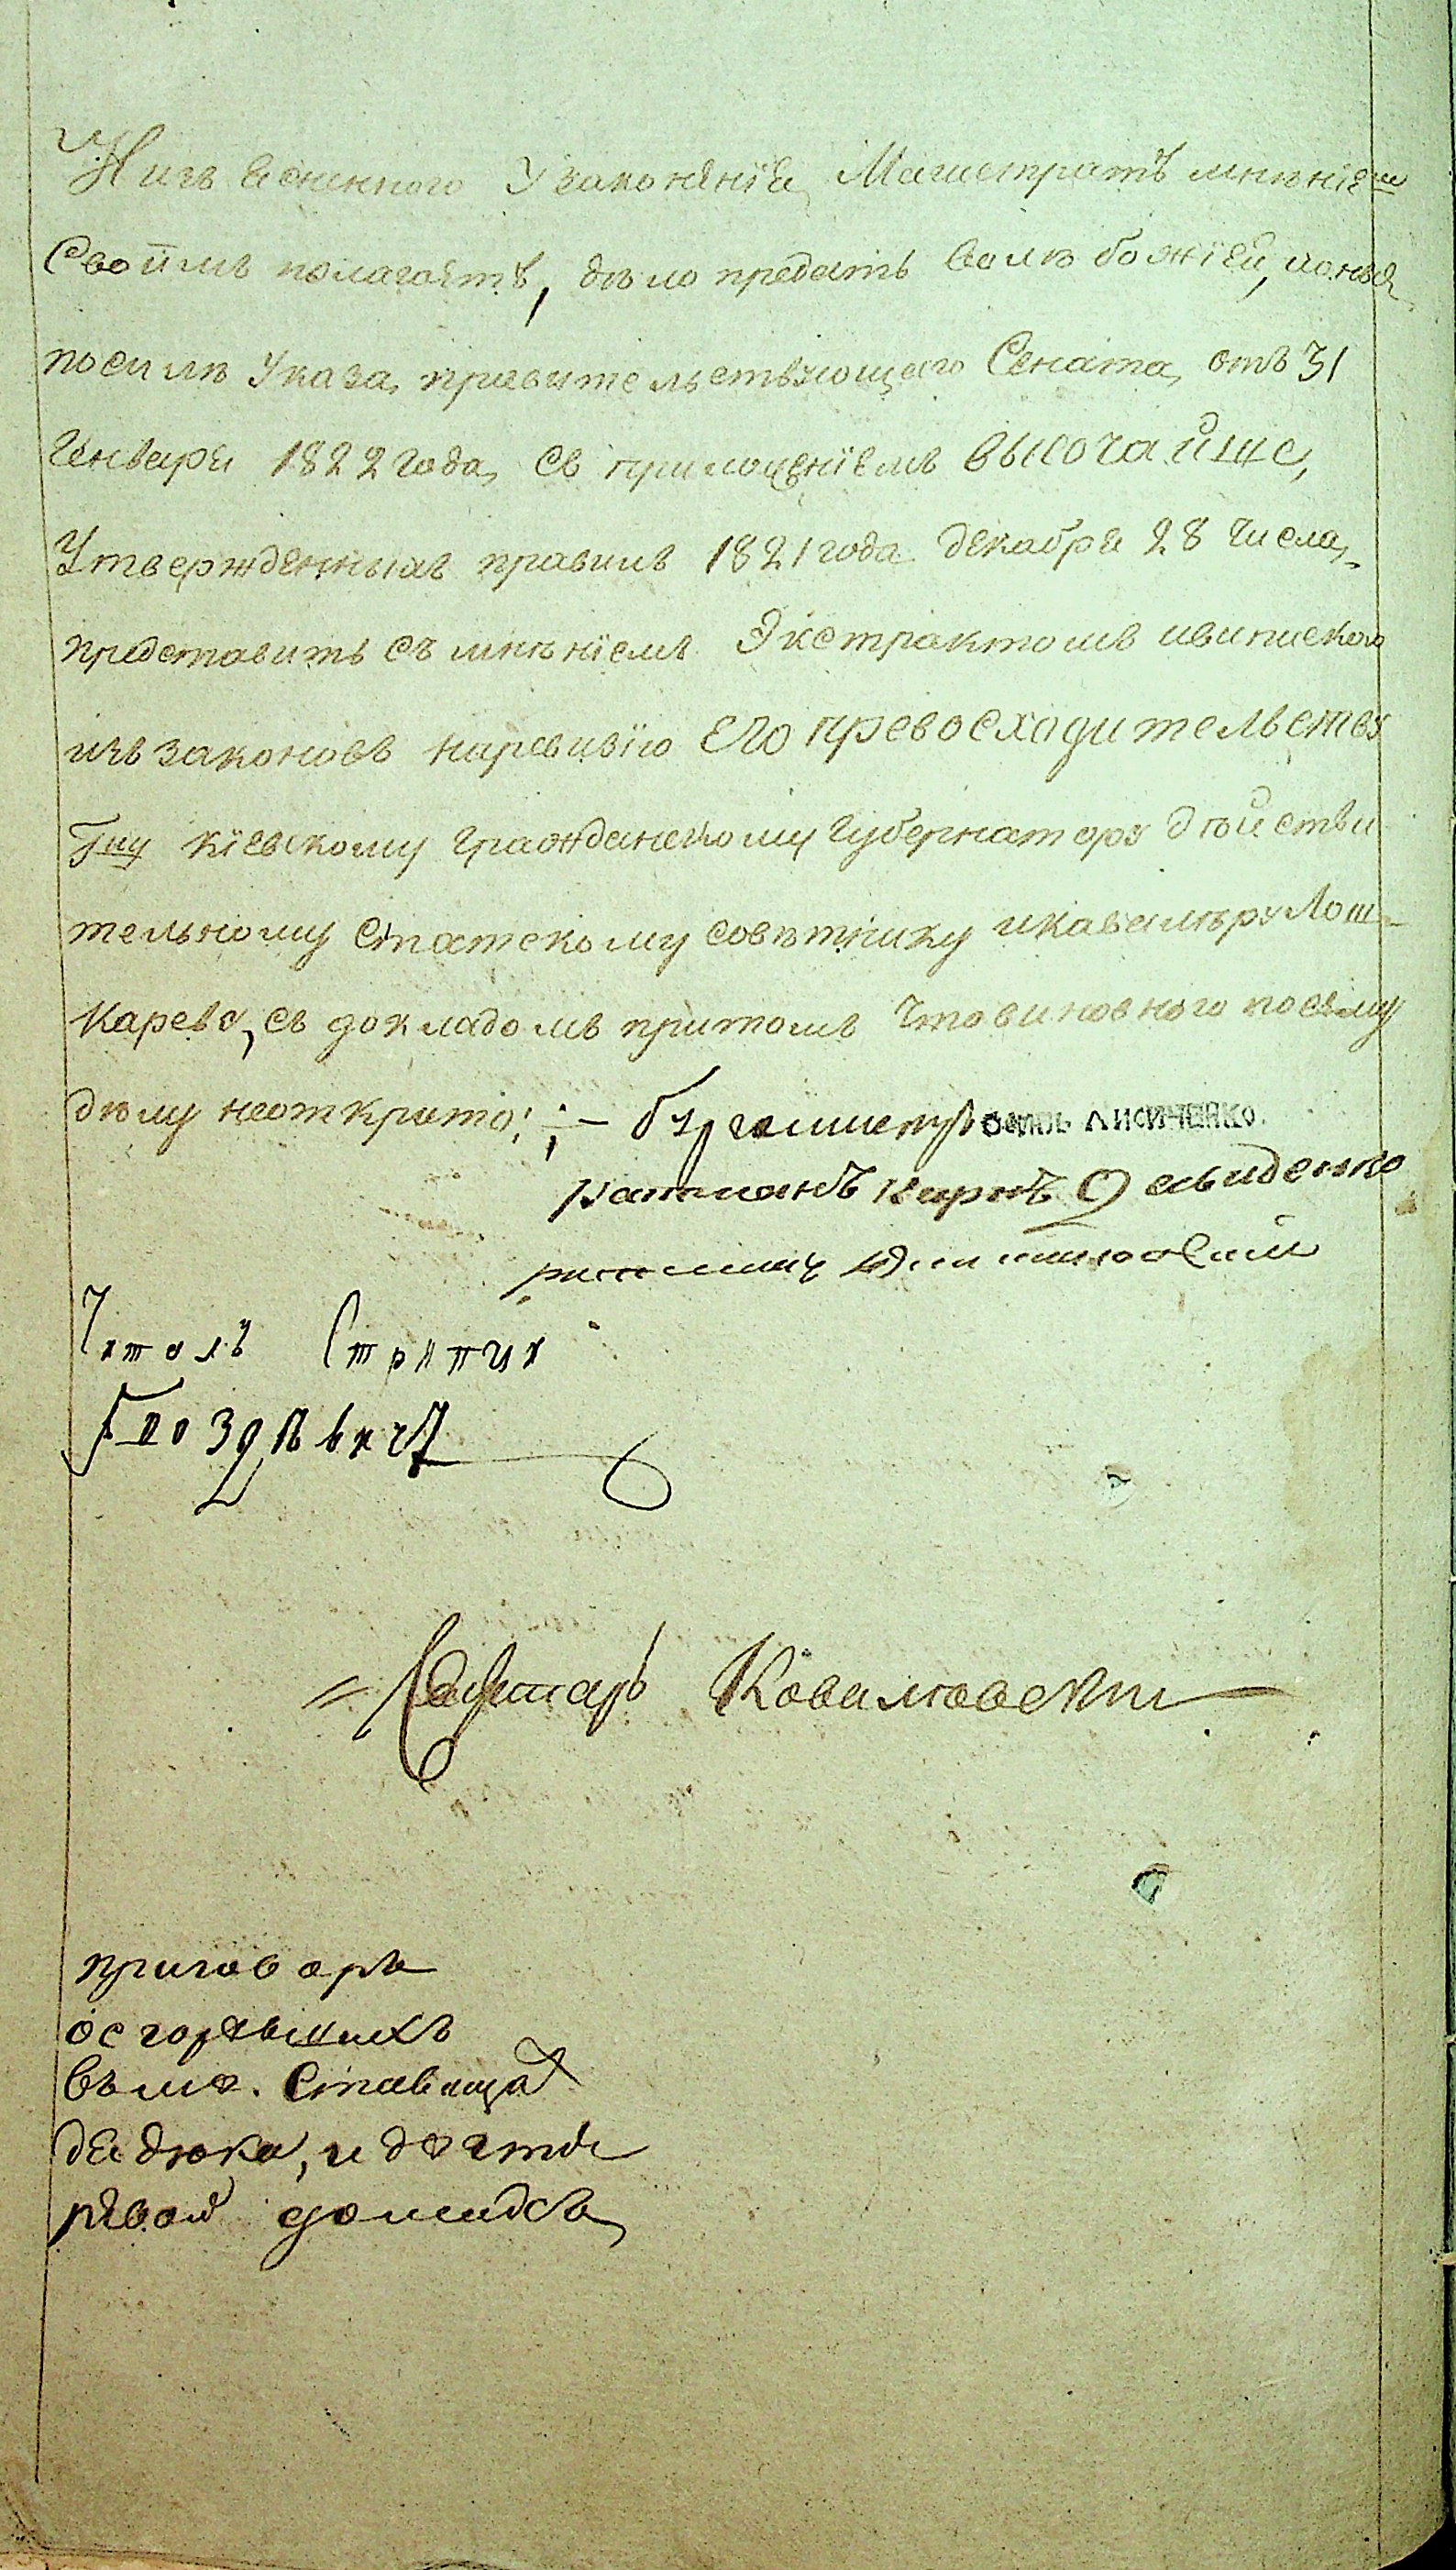 Узаконения Магистратъ мнениемъ
Своимъ полагаетъ, дѣло предать воли божіей, и оное
посилѣ Указа правительствующаго Сената отъ 31
Генваря 1822 года, съ приложеніемъ высочайше,
Утвержденныхъ правилъ 1821 года декабря 28 числа,
представить съ мнѣніемъ Экстрактомъ ивипискою
изъ законовъ наревизію Его превосходительству
Гну Кіевскому Гражданскому Губернатору дѣйстви
тельному Статскому совѣтнику икавалѣру Лош-
кареву, съ докладомъ притомъ Что виновного посему
дѣлу неоткрыто:
Бургомистръ Лисиченко
Ратманъ Карпъ
Читалъ Стряпчи
Секретарь Ковалковски
приговоръ
о сгорѣвшихъ
въ м. Ставищахъ
дядюка, и
домидсъ